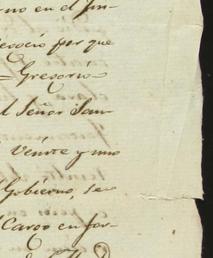 rno en el
esoció por que
= Gregorio
l Señor San-
Veinte y uno
Gobierno, se
Cargo en for-